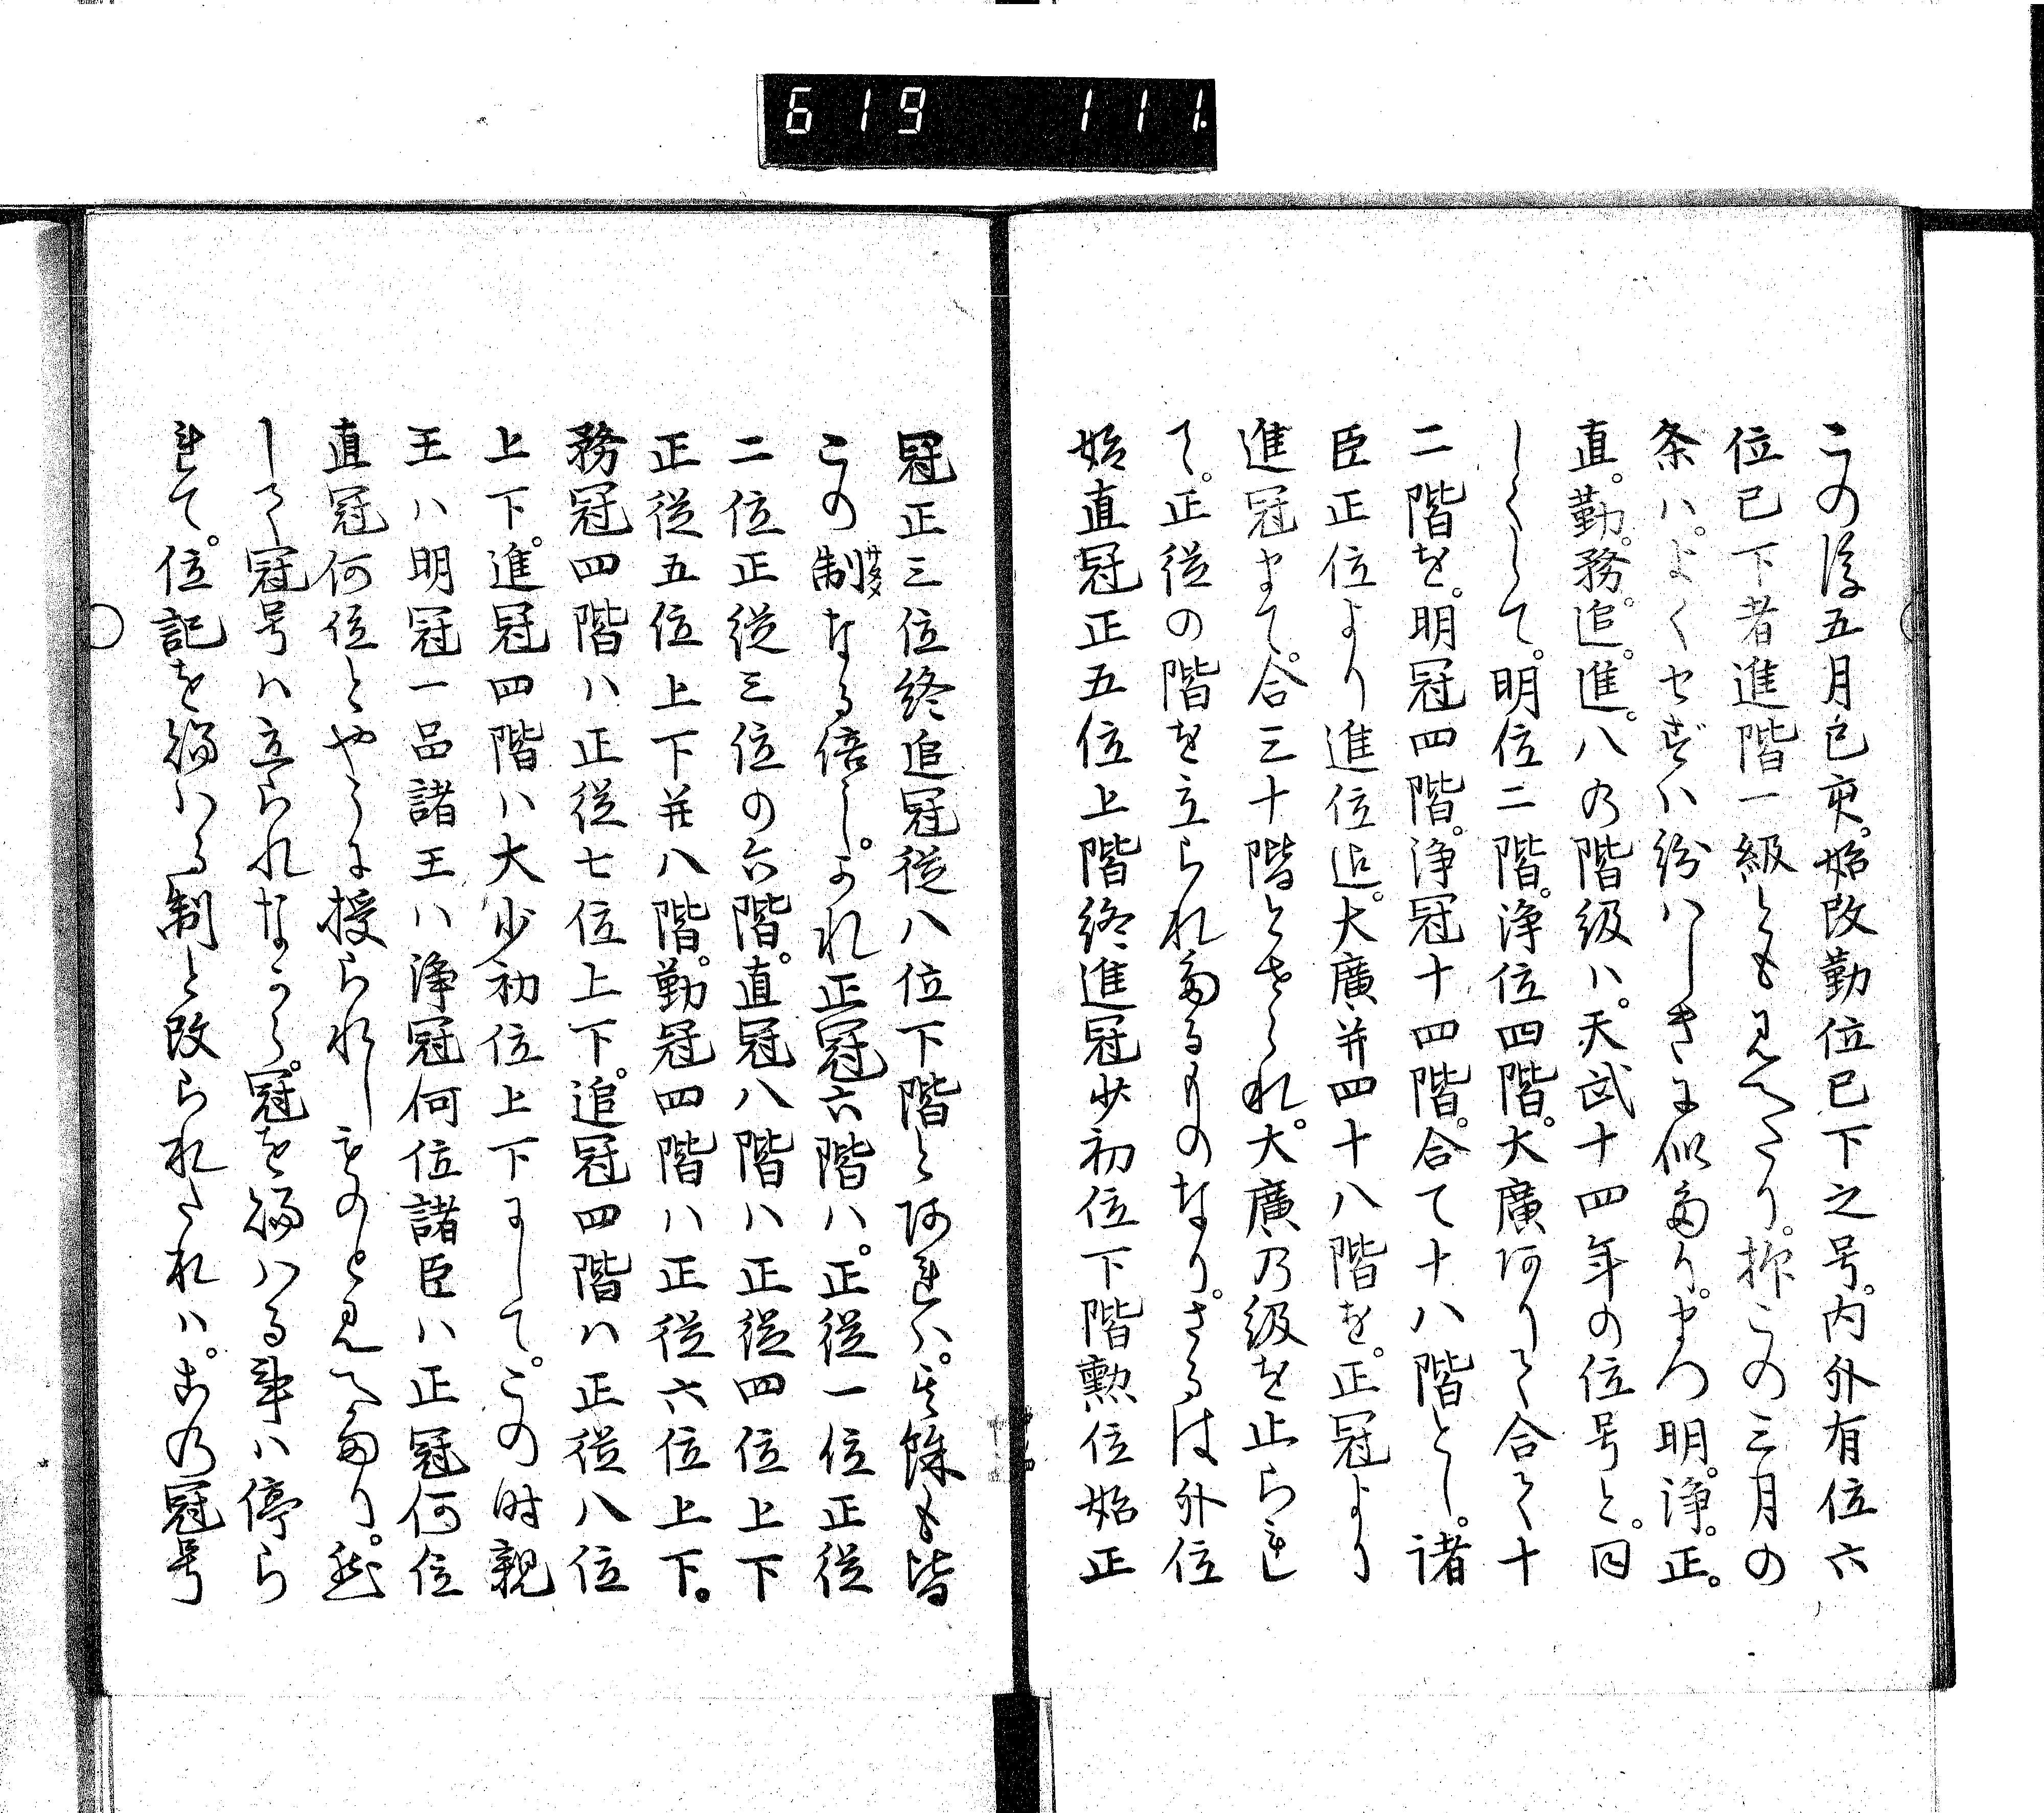 619 111.
この後五月己亥。始改勤位已下之号。内外有位六
位已下者進階一級とも見へたり。抑この三月の
条ハ。よくせずハ紛ハしきに似たり。まつ明。浄。正。
直。勤。務。追。進。八の階級ハ。天武十四年の位号と。同
しくして。明位二階。浄位四階。大廣ありて合て十
二階を。明冠四階。浄冠十四階。合て十八階とし。諸
臣正位より進位迄。大廣并四十八階を。正冠より
進冠まて。合三十階とせられ。大廣乃級を止られ
て。正従の階を立られたるものなり。さるは外位
始直冠正五位上階終進冠少初位下階勲位始正
冠正三位終追冠従八位下階とあれハ。其餘も皆
この制なる倍し。かれ正冠六階ハ。正従一位正従
サダメ
二位正従三位の六階。直冠八階ハ正従四位上下
正従五位上下并八階。勤冠四階ハ正従六位上下。
務冠四階ハ正従七位上下。追冠四階ハ正従八位
上下。進冠四階ハ大少初位上下にして。この時親
王ハ明冠一品諸王ハ浄冠何位諸臣ハ正冠何位
直冠何位とやうに授られしものと見へたり。然
して冠号ハ立られなから。冠を賜ハる事ハ停ら
れて。位記を賜ハる制と改られたれハ。古の冠号